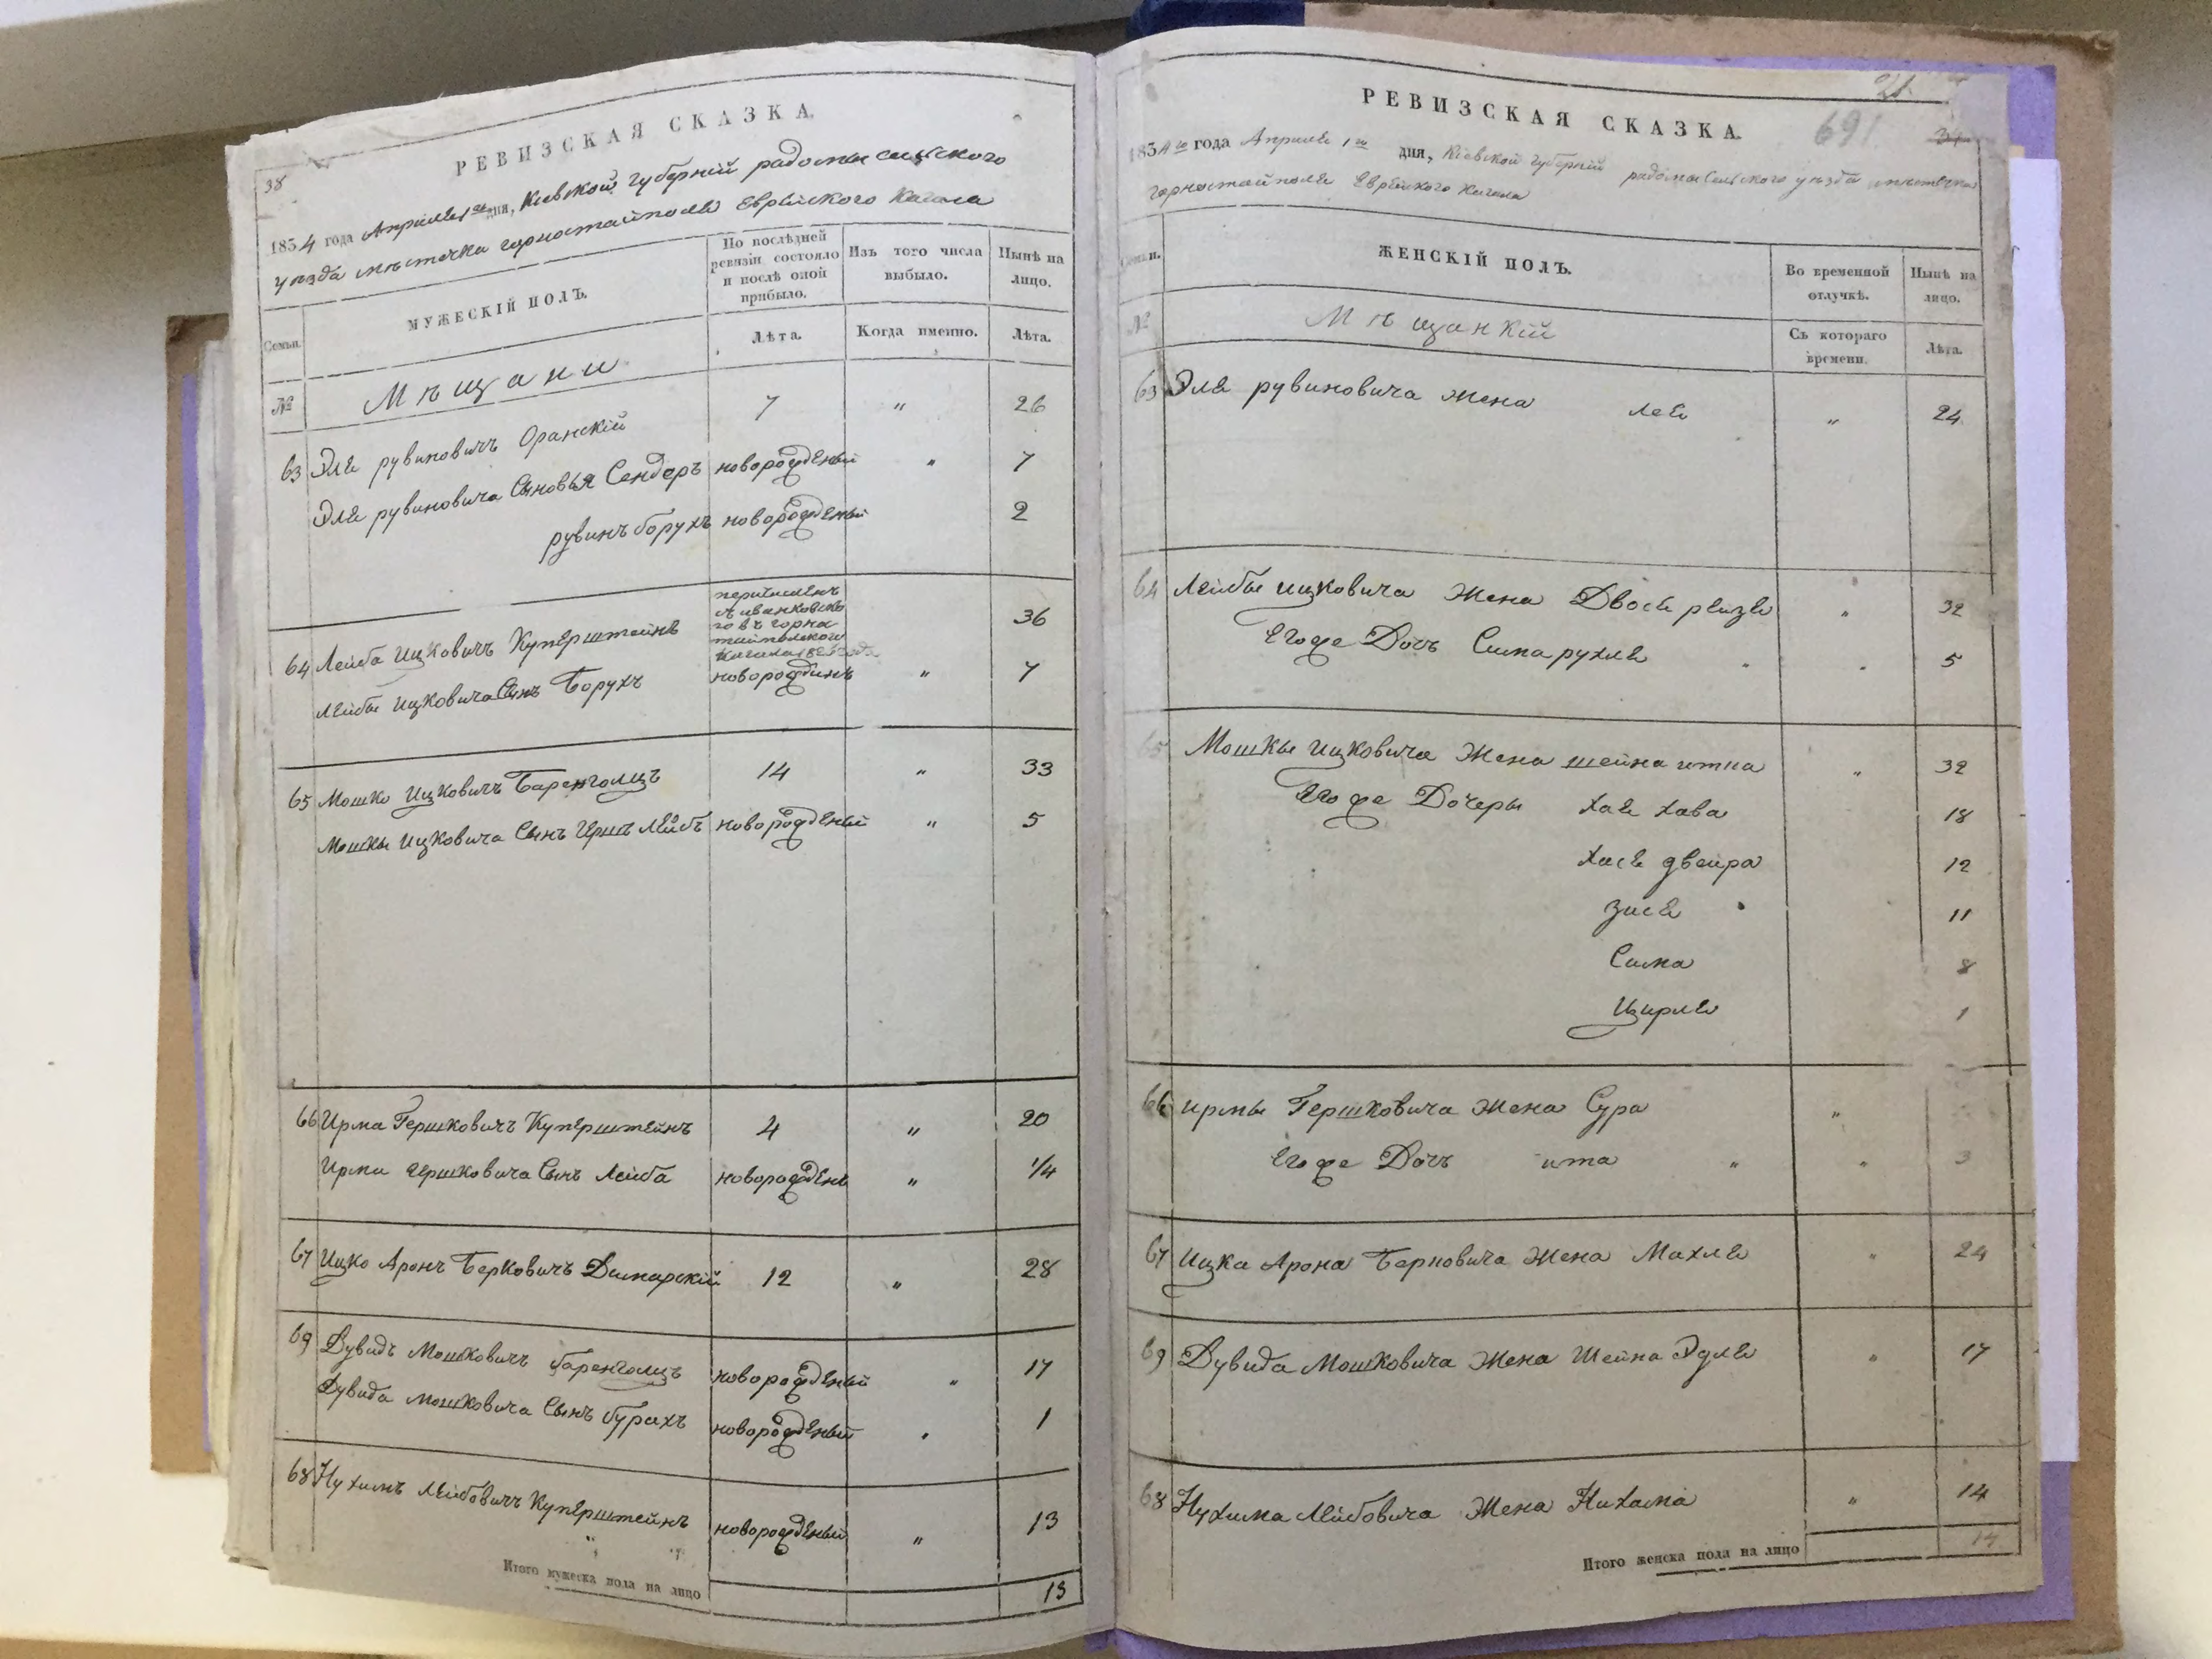 38
РЕВИЗСКАЯ СКАЗКА.
1834 года Апреля 1го дня, Кіевской губерній радомысльского
уѣзда мѣстечка горностайполя Еврейского Кагала
Семьи.
МУЖЕСКІЙ ПОЛЪ.
По послѣдней ревизіи состояло и послѣ оной прибыло.
Изъ того числа выбыло.
Нынѣ на лицо.
№
Мѣщани
Лѣта.
Когда именно.
Лѣта.
63 Эля рувиновичъ Оранскій 7 " 26
Эля рувиновича Сыновья Сендеръ новорожденый " 7
рувинъ борухъ новорожденый 2
64 Лейба Ицковичъ Куперштейнъ 36
Лейбы Ицковича Сынъ Борухъ новорождинъ " 7
65 Мошко Ицковичъ Баренголцъ 14 " 33
Мошки Ицковича Сынъ Гершъ Лейбъ новорожденый " 5
66 Ирма Гершковичъ Куперштейнъ 4 " 20
Ирми Гершковича Сынъ Лейба новорожденъ " 1/4
67 Ицко Аронъ Берковичъ Димарскій 12 " 28
69 Дувидъ Мошковичъ баренголцъ новорожденый " 17
Дувида Мошковича Сынъ бурахъ новорожденый " 1
68 Нухимъ Лейбовичъ Куперштейнъ новорожденый " 13
Итого мужеска пола на лицо 13
21
691
РЕВИЗСКАЯ СКАЗКА.
1834го года Апреля 1го дня, Кіевской губерній радомысльского уѣзда мѣстечка
горностайполя Еврейского Кагала
Семьи.
ЖЕНСКІЙ ПОЛЪ.
Во временной отлучкѣ.
Нынѣ на лицо.
№
Мѣщанкій
Съ котораго времени.
Лѣта.
63 Эля рувиновича Жена лея " 24
64 Лейбы Ицковича Жена Двося рейзя " 32
Егоже Дочь Сима рухля " 5
65 Мошки Ицковича Жена шейна итта " 32
Егоже Дочеры хая хава 18
хася двейра 12
зися 11
Сима 8
Цирля 1
66 Ирмы Гершковича Жена Сура "
Егоже Дочь ита " " 3
67 Ицка Арона Берковича Жена Махля " 24
69 Дувида Мошковича Жена Шейна Эдля " 17
68 Нухима Лейбовича Жена Нихама " 14
Итого женска пола на лицо 14